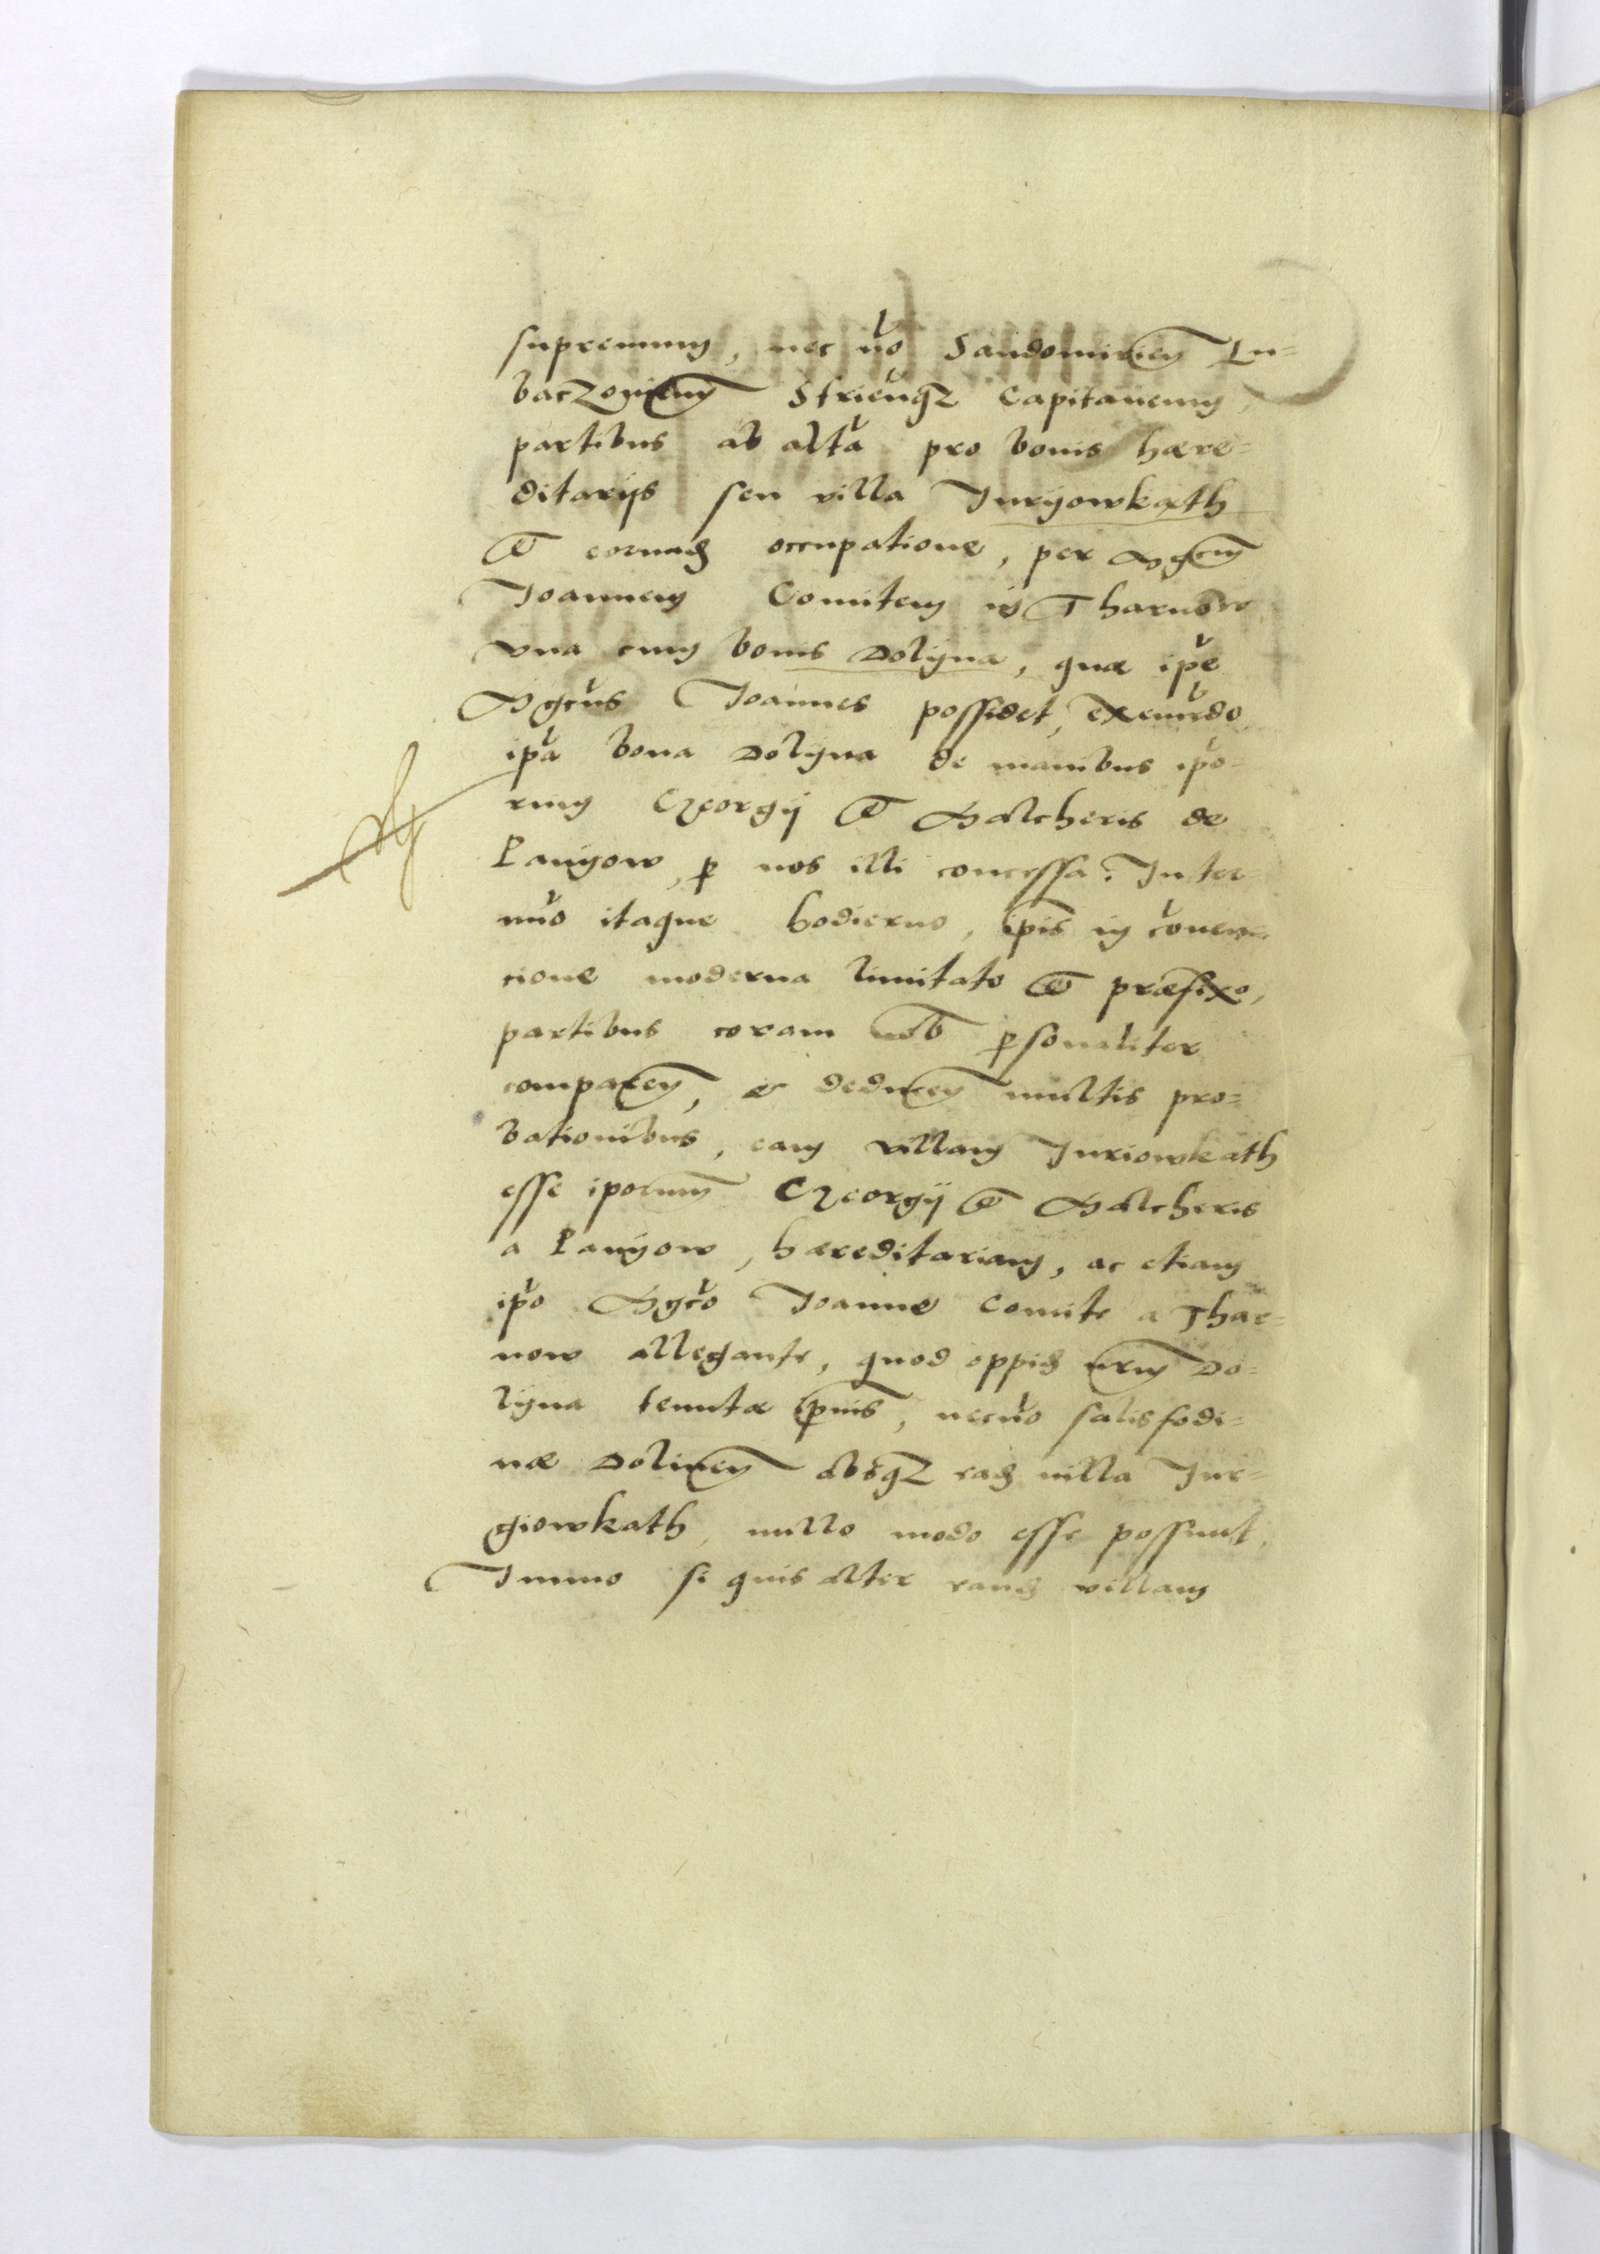 supremum, nec nō Sandomirien Lu=
baczovien Strieñqz Capitaneum,
partibus ab altã pro bonis hære=
ditarijs seu villa Juryowkath
et eorund occupatione, per Mgcm
Joannem Comitem in Tharnow
vna cum bonis Dolyna, quæ ipẽ
Mgcũs Joannes possidet, eximẽdo
ipã bona Dolyna de manibus ipõ=
rum Georgij et Malcheris de
Panyow, p nos illi concessa. In ter=
mĩo itaque hodierno, ipis in cõuen=
cione moderna limitato et præfixo,
partibus coram nob psonaliter
comparen, & deducen multis pro=
bationibus, eam villam Juriowkath
esse ipõrum Georgij et Malcheris
a Panyow, hæreditariam, ac etiam
ipõ Mgcõ Joanne Comite a Thar=
now allegante, quod oppid nrm Do=
lyna tenutæ pnis, necnõ salisfodi=
næ Dolinen absqz ead villa Jur=
giowkath, nullo modo esse possunt,
Immo si quis alter eand villam